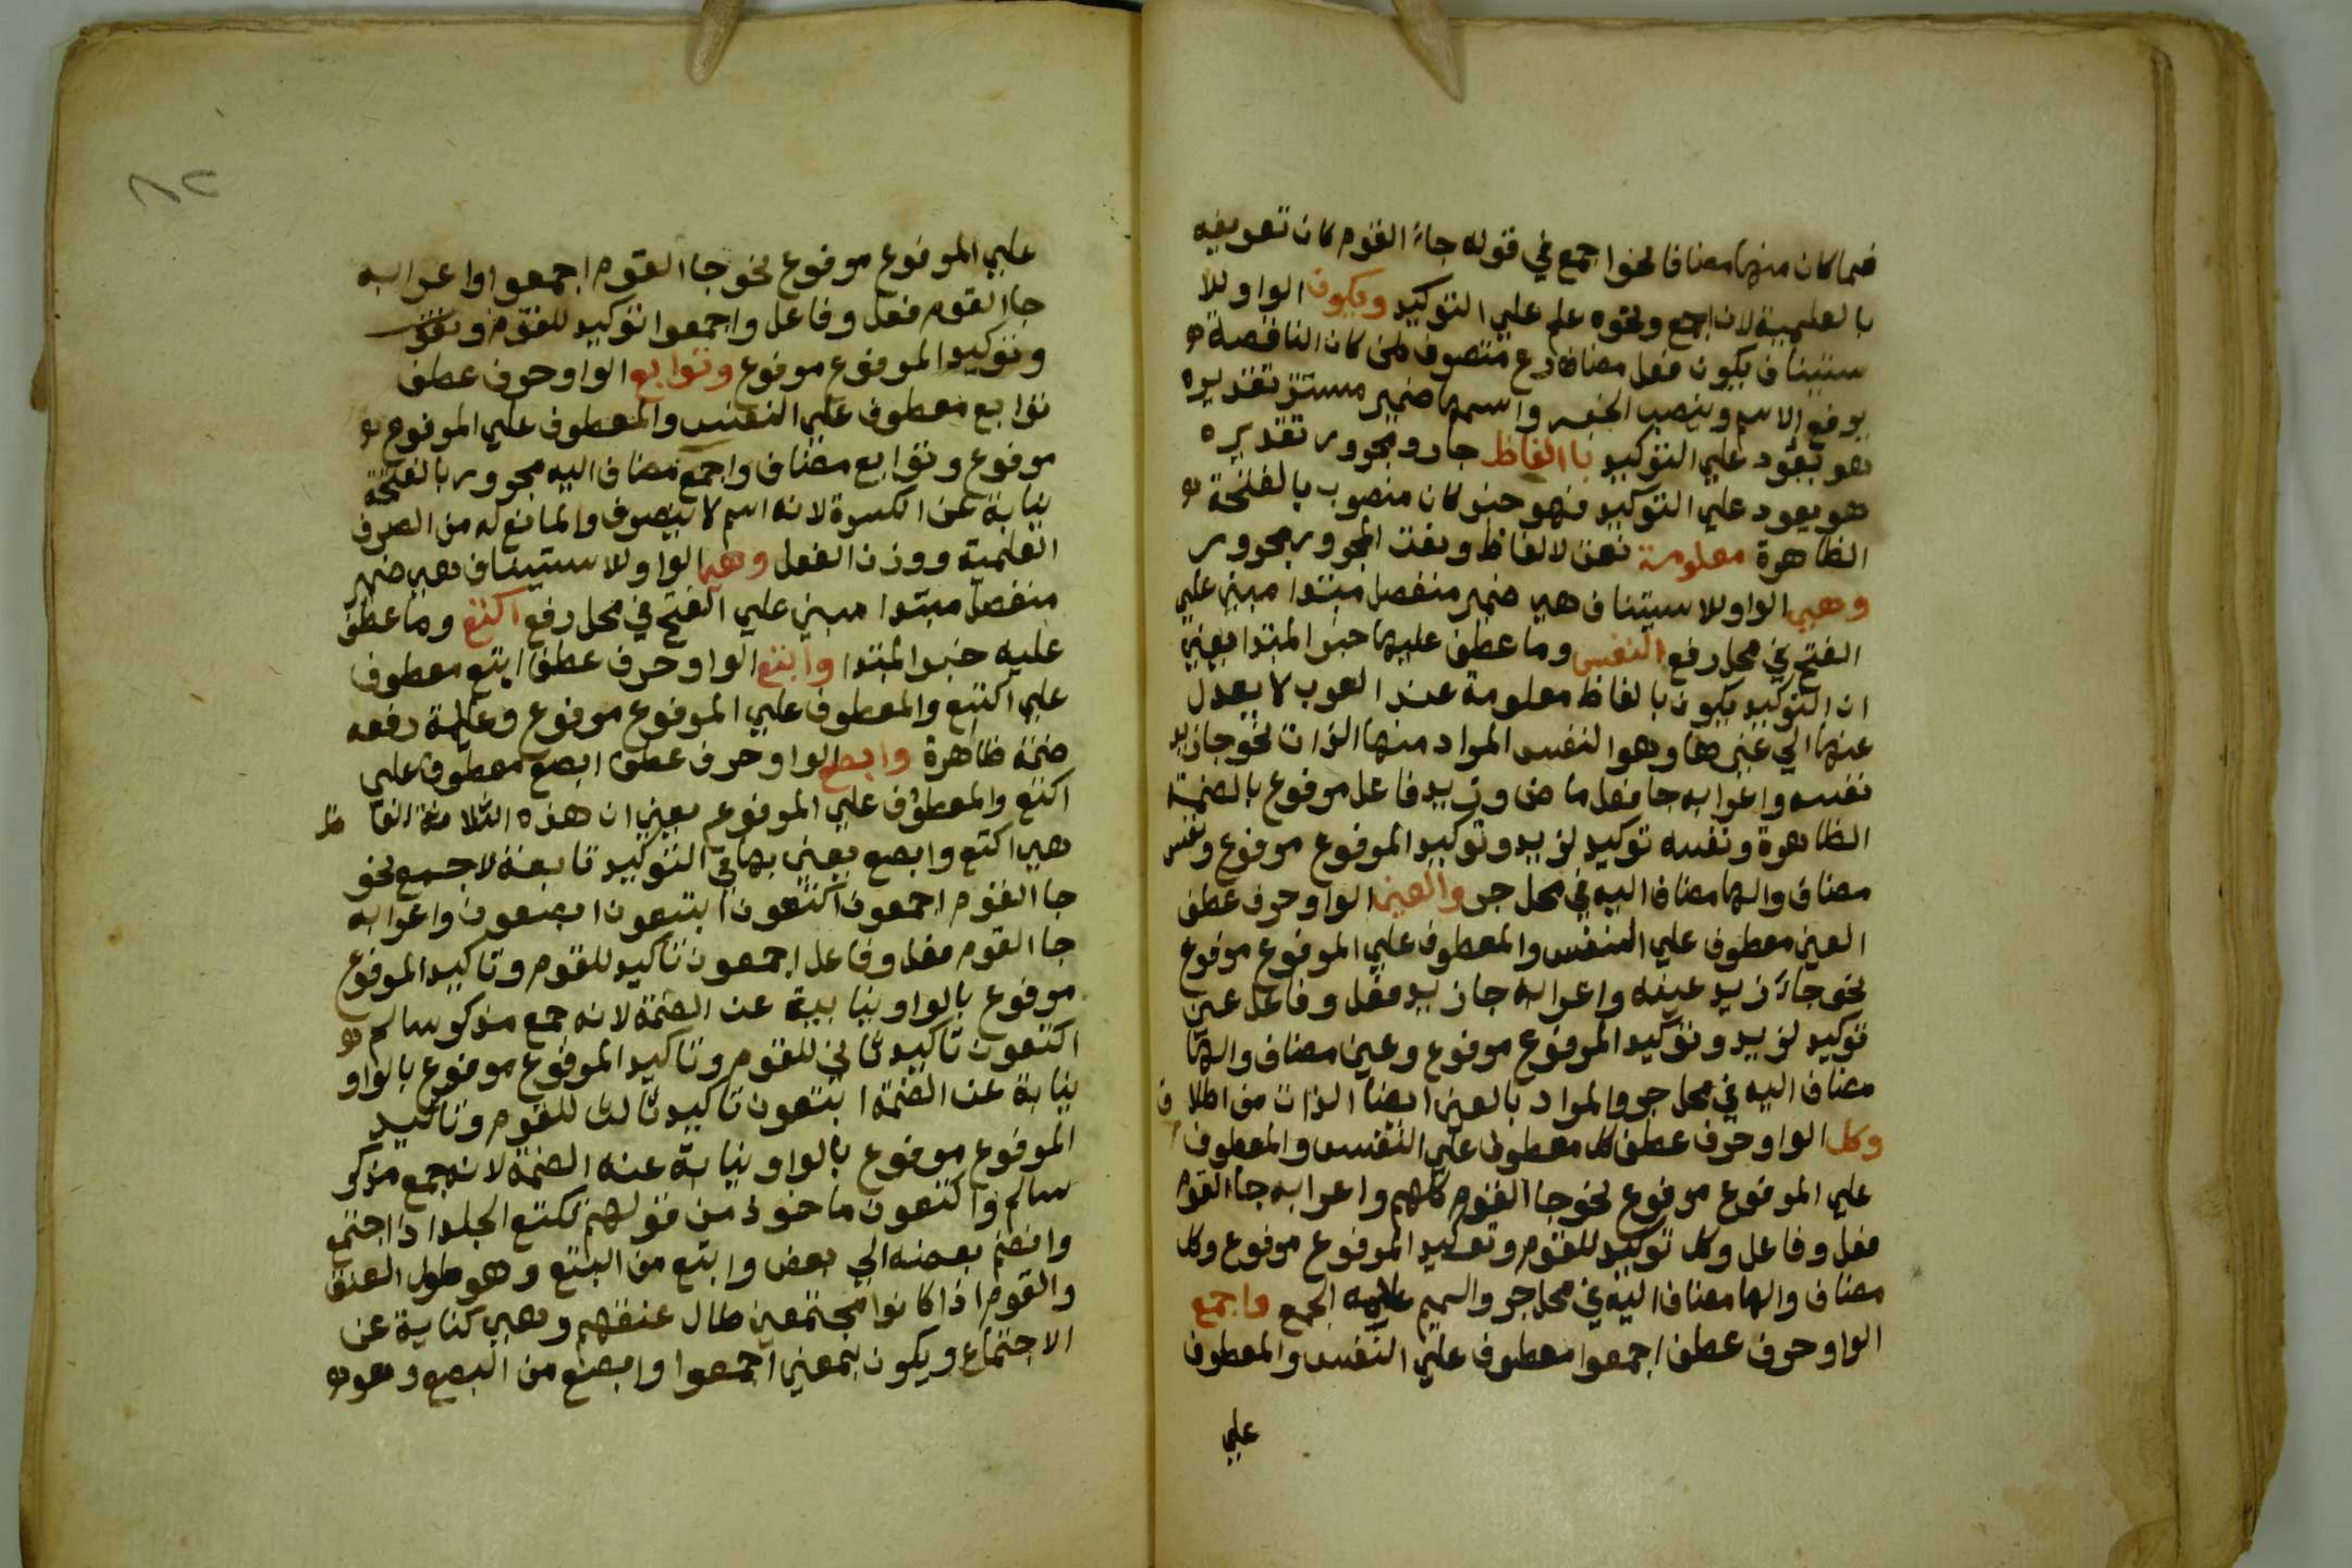 فما كان منها مضافا نحوا جمع في قوله جاء القوم كان تعريفه
بالعلمية لان اجمع ونحوه علم علي التوكيد ويكون الواو للا
ستيناف يكون فعل مضارع متصرف من كان الناقصة
يرفع الاسم وينصب الخبر واسمها ضمير مستتر تقديره
هو يعود علي التوكيد بالفاظ جار ومجرور تقديره
هو يعود علي التوكيد فهو خبر كان منصوب بالفتحة
الظاهرة معلومة نعت لالفاظ ونعت المجرور مجرور
وهي الواو للاستيناف هي ضمير منفصل مبتدا مبني علي
الفتح في محل رفع النفس وما عطف عليها خبر المبتدا يعني
ان التوكيد يكون بالفاظ معلومة عند العرب لا يعدل
عنها الي غيرها وهو النفس المراد منها الذات نحو جا زيد
نفسه واعرابه جا فعل ماض وزيد فاعل مرفوع بالضمة
الظاهرة ونفسه توكيد لزيد وتوكيد المرفوع مرفوع ونفس
مضاف والها مضاف اليه في محل جر والعين الواو حرف عطف
العين معطوف علي النفس والمعطوف علي المرفوع مرفوع
نحو جاء زيد عينه واعرابه جا زيد فعل وفاعل عين
توكيد لزيد وتوكيد المرفوع مرفوع وعين مضاف والها
مضاف اليه في محل جر والمراد بالعين ايضا الذات من اطلا ق
وكل الواو حرف عطف كل معطوف علي النفس والمعطوف
علي المرفوع مرفوع نحو جا القوم كلهم واعرابه جا القوم
فعل وفاعل وكل توكيد للقوم وتوكيد المرفوع مرفوع وكل
مضاف والها مضاف اليه في محل جر والميم علامة الجمع واجمع
الواو حرف عطف اجمعوا معطوف علي النفس والمعطوف
علي
علي المرفوع مرفوع نحو جا القوم اجمعوا واعرابه
جا القوم فعل وفاعل واجمعوا توكيد للقوم
وتوكيد المرفوع مرفوع وتوابع الواو حرف عطف
توابع معطوف علي النفس والمعطوف علي المرفوع
مرفوع وتوابع مضاف واجمع مضاف اليه مجرور بالفتحة
نيابة عن الكسرة لانه اسم لا ينصرف والمانع له من الصرف
العلمية ووزن الفعل وهي الواو للاستيناف هي ضمير
منفصل مبتدا مبني علي الفتح في محل رفع اكتع وما عطف
عليه خبر المبتدا وابتع الواو حرف عطف ابتع معطوف
علي اكتع والمعطوف علي المرفوع مرفوع وعلامة رفعه
ضمة ظاهرة وابصع الواو حرف عطف ابصع معطوف علي
اكتع والمعطوف علي المرفوع يعني ان هذه الثلاثة الفا ظ
هي اكتع وابصع يعني بها في التوكيد تابعة لاجمع نحو
جا القوم اجمعون اكتعون ابتعون ابصعون واعرابه
جا القوم فعل وفاعل اجمعون تاكيد للقوم وتاكيد المرفوع
مرفوع بالواو نيابية عن الضمة لانه جمع مذكر سالم
اكتعون تاكيد ثاني للقوم وتاكيد المرفوع مرفوع بالواو
نيابة عن الضمة ابتعون تاكيد ثالث للقوم وتاكيد
المرفوع مرفوع بالواو نيابة عنه الضمة لانه جمع مذكر
سالم واكتعون ماخوذ من قولهم تكتع الجلد اذا اجتمع
وانضم بعضه الي بعض وابتع من البتع وهو طول العنق
والقوم اذا كانوا مجتمعين طال عنقهم وهي كناية عن
الاجتماع ويكون بمعني اجمعوا وابصع من البصع وهو